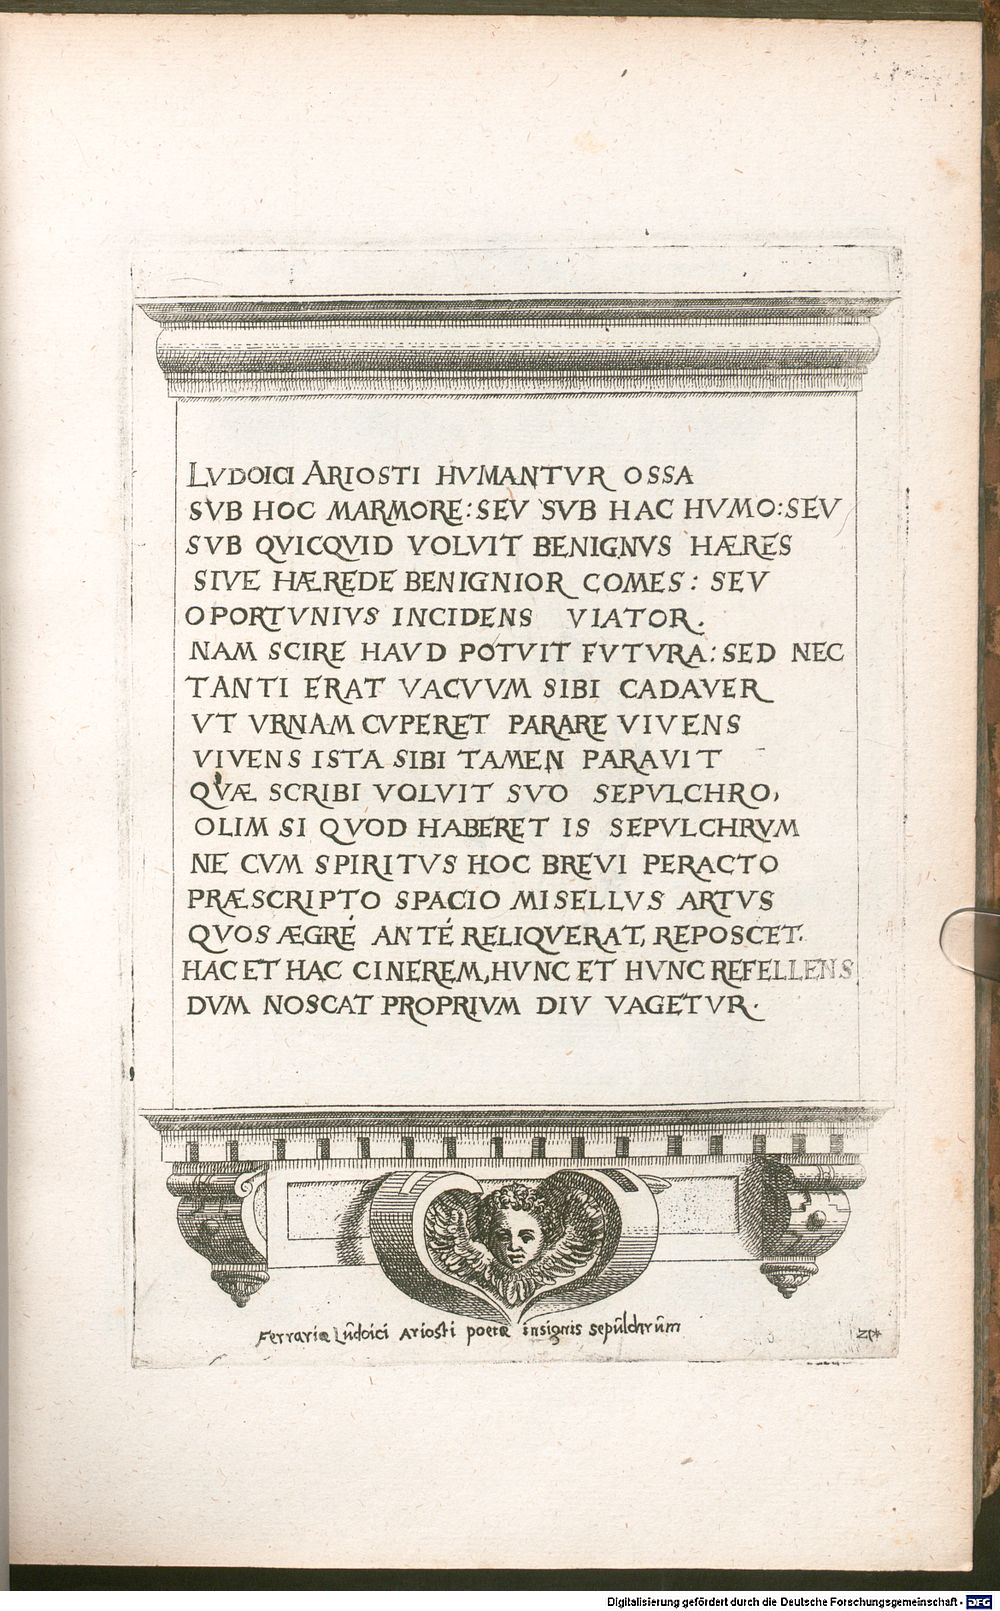 LVDOICI ARIOSTI HVMANTVR OSSA
SVB HOC MARMORE: SEV SVB HAC HVMO: SEV
SVB QVICQVID VOLVIT BENIGNVS HÆRES
SIVE HÆREDE BENIGNIOR COMES: SEV
OPORTVNIVS INCIDENS VIATOR.
NAM SCIRE HAVD POTVIT FVTVRA: SED NEC
TANTI ERAT VACVVM SIBI CADAVER
VT VRNAM CVPERET PARARE VIVENS
VIVENS ISTA SIBI TAMEN PARAVIT
QVÆ SCRIBI VOLVIT SVO SEPVLCHRO,
OLIM SI QVOD HABERET IS SEPVLCHRVM
NE CVM SPIRITVS HOC BREVI PERACTO
PRÆSCRIPTO SPACIO MISELLVS ARTVS
QVOS ÆGRÉ ANTÉ RELIQVERAT, REPOSCET.
HAC ET HAC CINEREM, HVNC ET HVNC REFELLENS
DVM NOSCAT PROPRIVM DIV VAGETVR.
Ferrariæ Lŭdoici Ariosti poetæ insignis sepŭlchrŭm
Digitalisierung gefördert durch die Deutsche Forschungsgemeinschaft - DFG